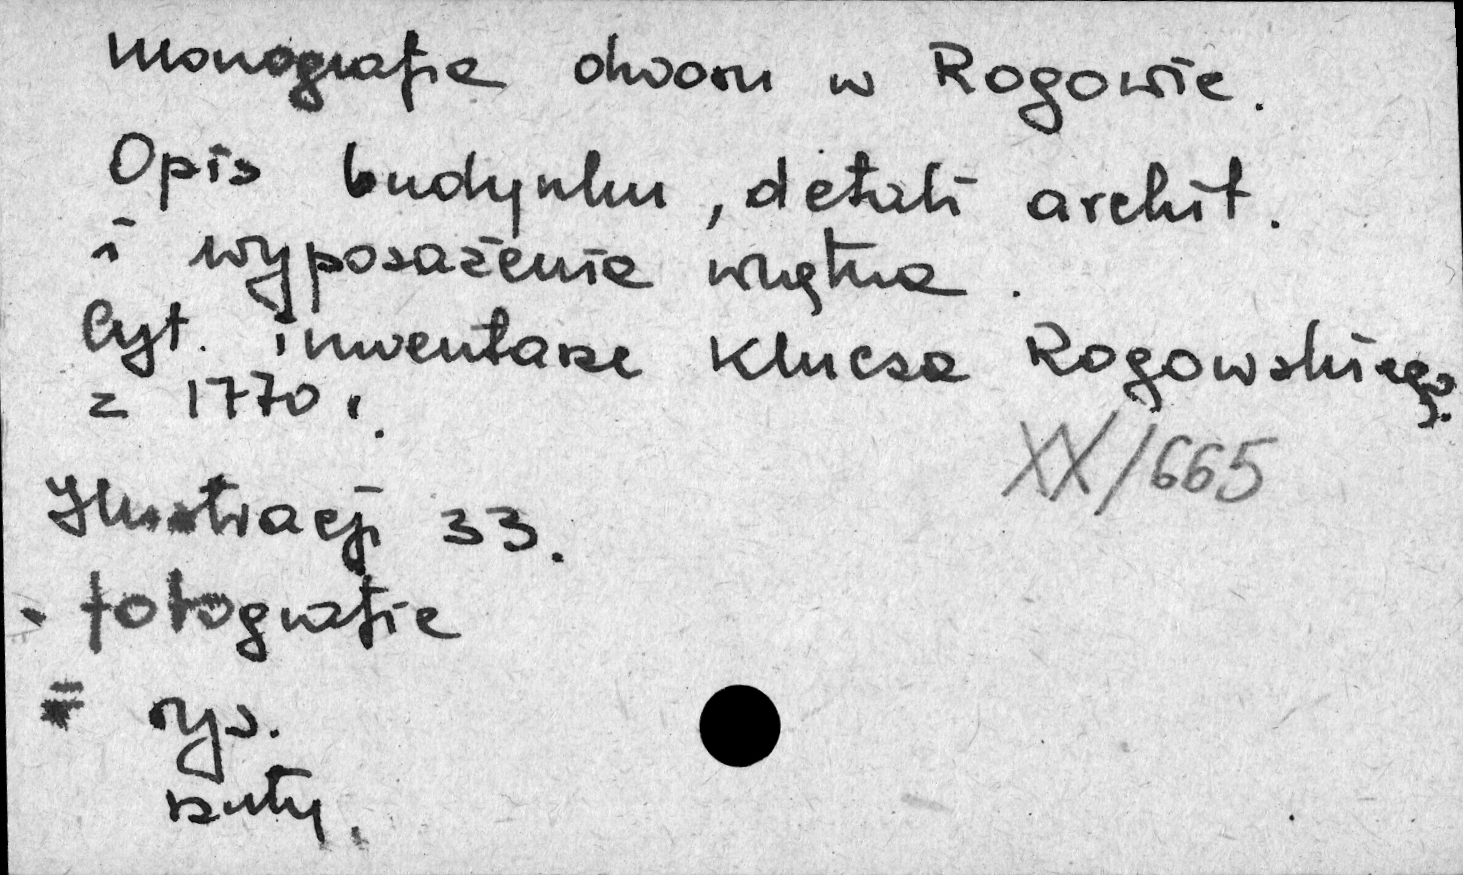 Monografia dworu w Rogowie.
Opis budynku, detali archit.
i wyposażenia wnętrza.
Cyt. inwentarze Klucza Rogowskiego
z 1770 r.
XX/665
Ilustracji 33.
- fotografie
= rys.
rzuty.